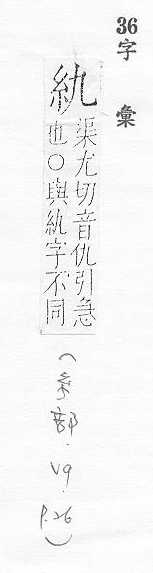 36
字彙
䊵
渠尤切音仇引急
也○與紈字不同
(糸部.V9.
P.26)